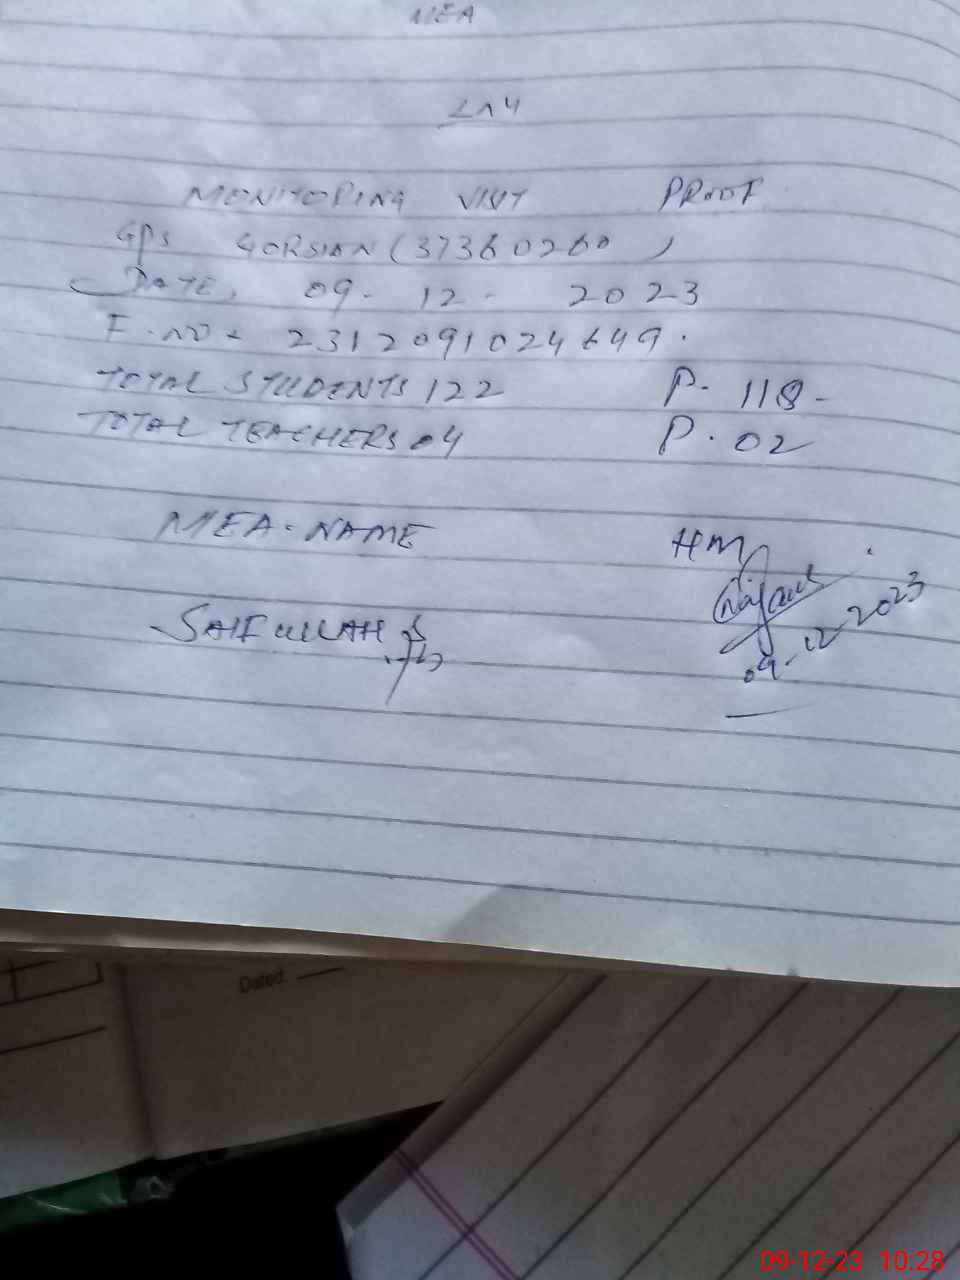 MEA
MONITOPING VISIT PROOF
GPS GORSIAN (37360260)
DATE, 09- 12- 2023
F.NO- 2312091024649.
TOTAL STUDENTS 122 P- 118-
TOTAL TEACHERS 04 P. 02
MEA-NAME
HM
SAIFULLAH
09-12-2023
Dated:
09-12-23 10:28